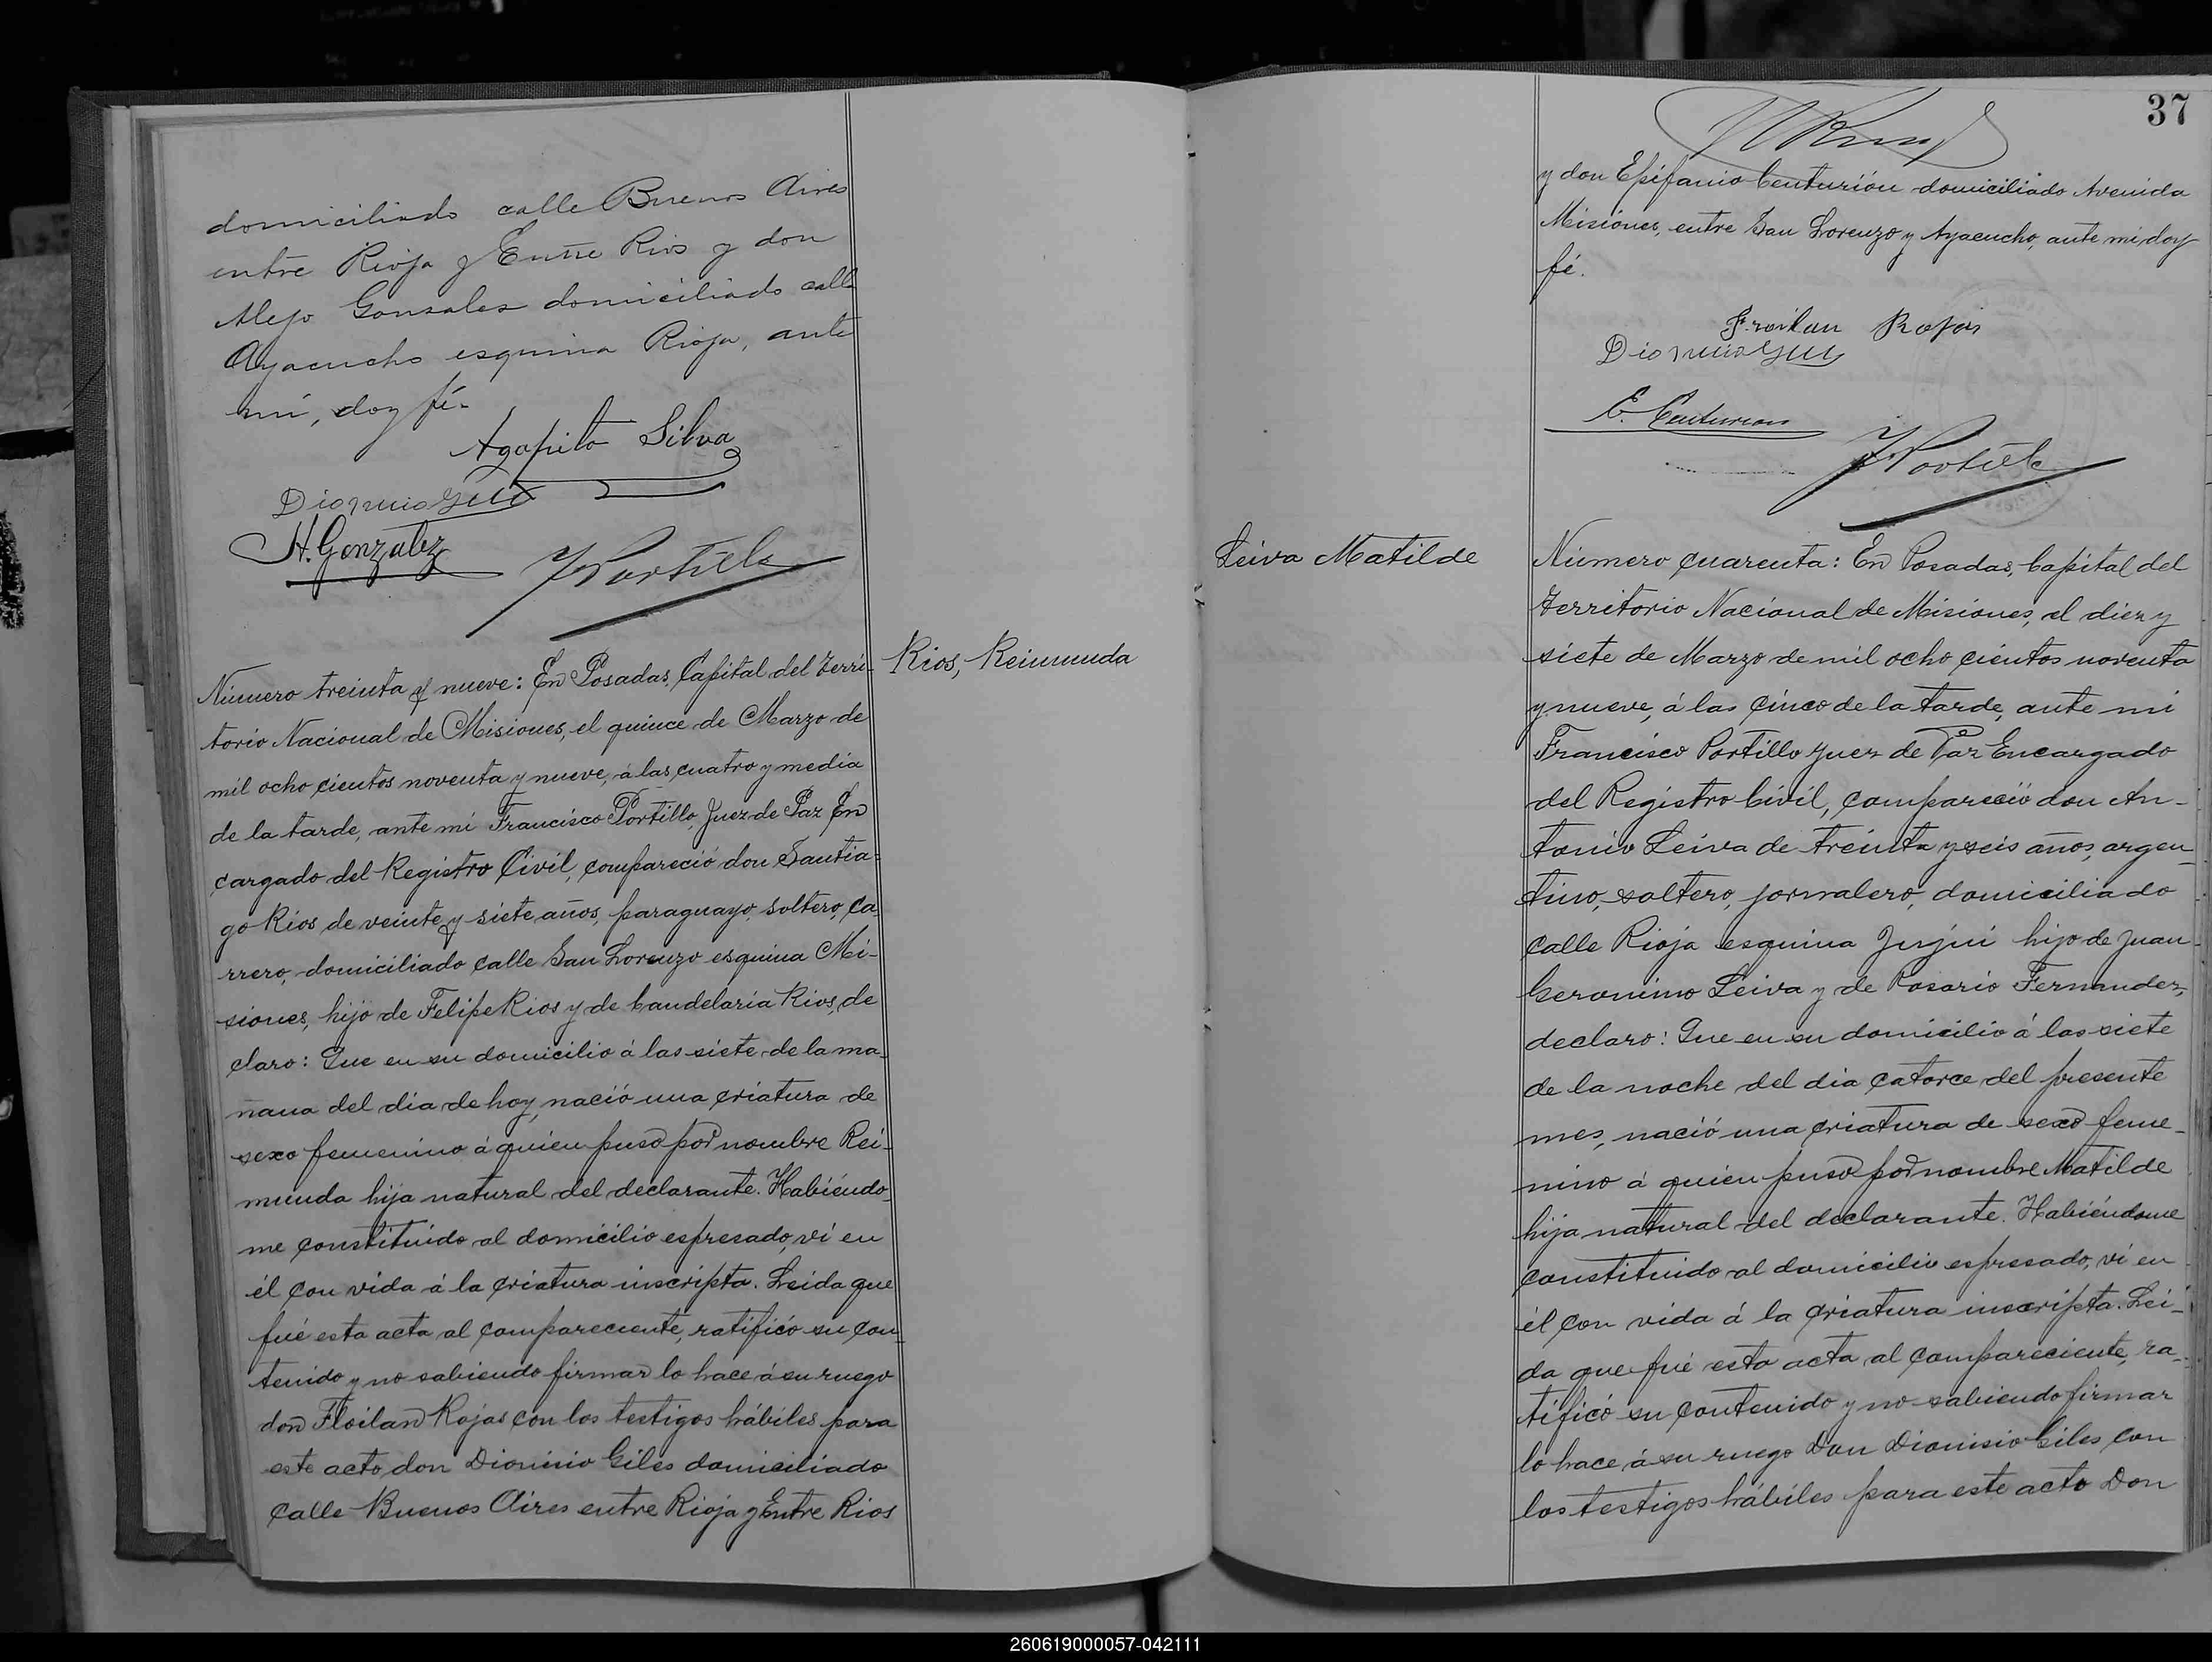 domiciliado calle Buenos Aires
entre Rioja y Entre Rios y don
Alejo Gonsales domiciliado calle
Ayacucho esquina Rioja, ante
mí, doy fé.
Agapito Silva
Dionicio Giles
H. Gonzalez
F Portillo
Rios, Reimunda
Número treinta y nueve: En Posadas, Capital del Terri-
torio Nacional de Misiones, el quince de Marzo de
mil ocho cientos noventa y nueve, á las cuatro y media
de la tarde, ante mi Francisco Portillo, Juez de Paz En
cargado del Registro Civil, compareció don Santia-
go Rios de veinte y siete años, paraguayo, soltero, ca
rrero, domiciliado calle San Lorenzo esquina Mi-
siones, hijo de Felipe Rios y de Candelaria Rios, de
claro: Que en su domicilio á las siete de la ma-
ñana del dia de hoy, nació una criatura de
sexo femenino á quien puso por nombre Rei-
munda hija natural del declarante. Habiéndo-
me constituido al domicilio espresado, ví en
él con vida á la criatura inscripta. Leida que
fué esta acta al compareciente, ratificó su con-
tenido y no sabiendo firmar lo hace á su ruego
don Floilan Rojas con los testigos hábiles para
este acto, don Dionisio Giles domiciliado
calle Buenos Aires entre Rioja y Entre Rios
37
y don Epifanio Centurión domiciliado Avenida
Misiones, entre San Lorenzo y Ayacucho, ante mi, doy
fé.
Froilan Rojas
Dionicio Giles
E. Centurion
F Portillo
Leiva Matilde
Número cuarenta: En Posadas, Capital del
Territorio Nacional de Misiones, el diez y
siete de Marzo de mil ocho cientos noventa
y nueve, á las cinco de la tarde, ante mi
Francisco Portillo Juez de Paz Encargado
del Registro Civil, compareció don An-
tonio Leiva de treinta y seis años, argen-
tino, soltero, jornalero, domiciliado
calle Rioja esquina Jujui hijo de Juan
Geronimo Leiva y de Rosario Fernandez,
declaro: Que en su domicilio á las siete
de la noche del dia catorce del presente
mes, nació una criatura de sexo feme-
nino á quien puso por nombre Matilde
hija natural del declarante. Habiéndome
constituido al domicilio espresado, ví en
él con vida á la criatura inscripta. Lei-
da que fué esta acta al compareciente, ra-
tificó su contenido y no sabiendo firmar
lo hace á su ruego Don Dionisio Giles con
los testigos hábiles para este acto Don
260619000057-042111